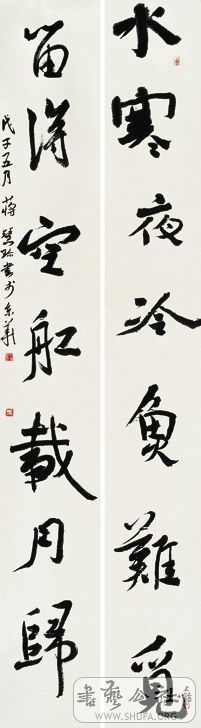 水寒夜冷魚難覓
留得空舡載月歸
戊子五月蔣慧書於京華
書藝公社
WWW.SHUFA.ORG